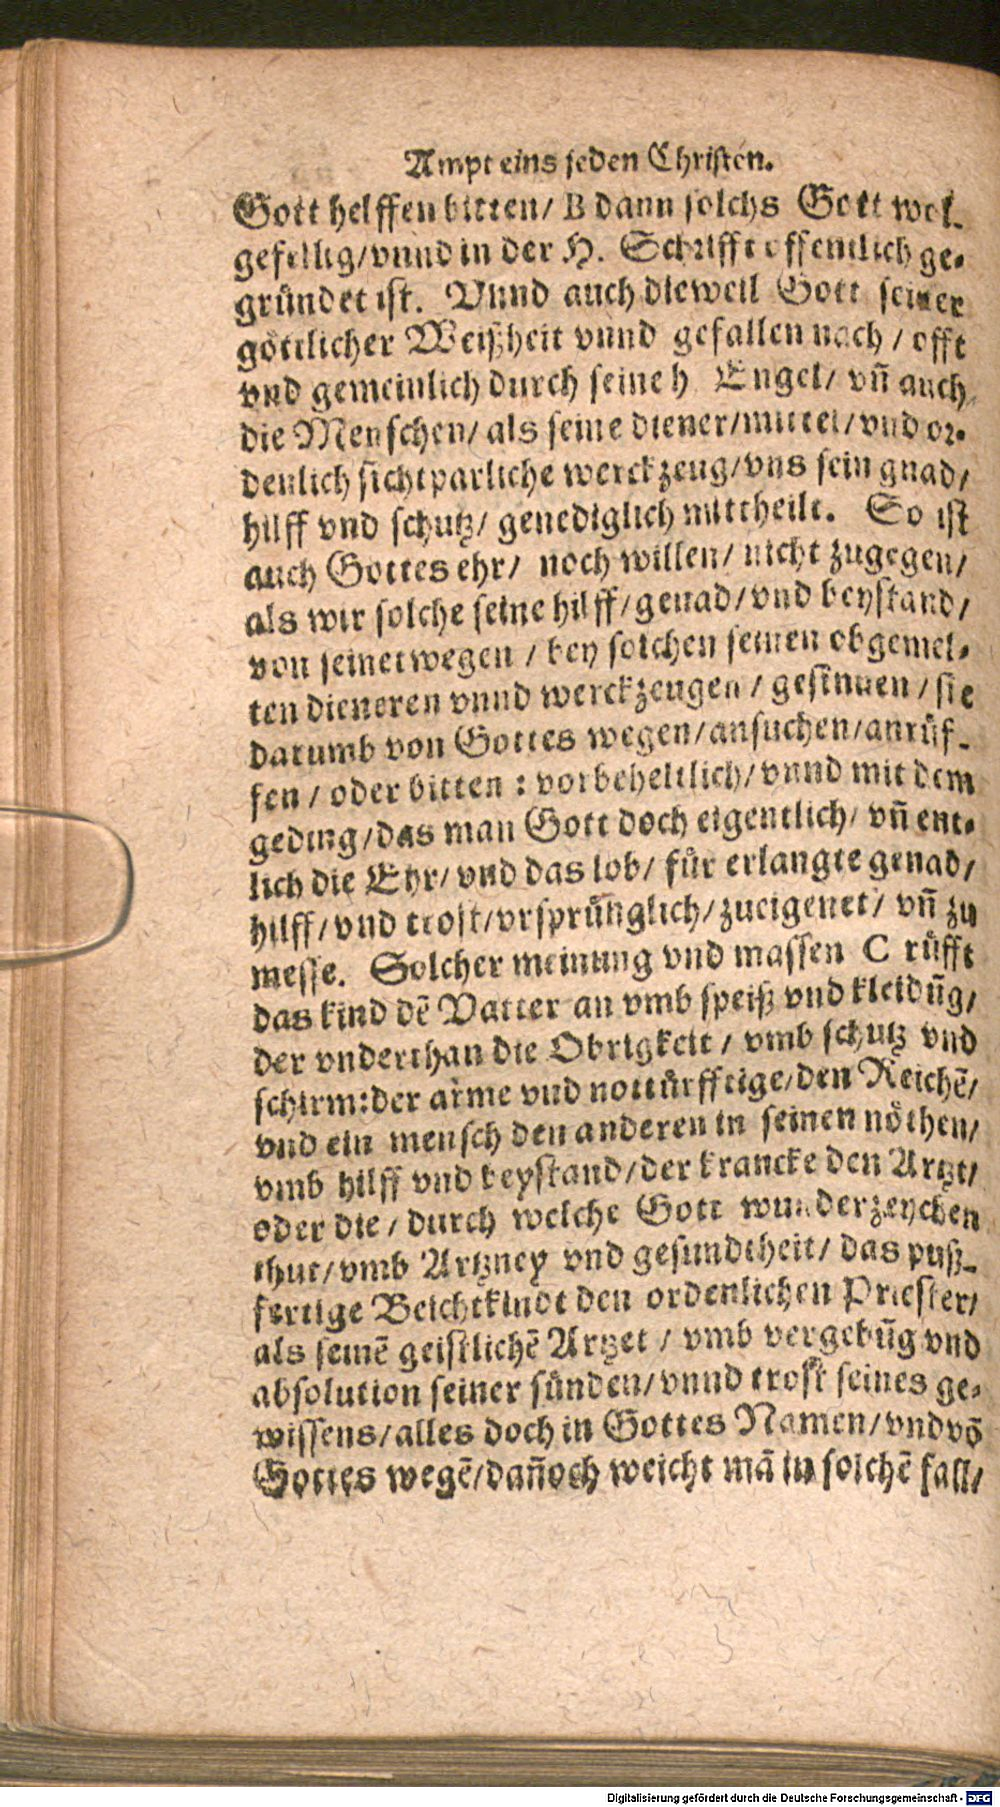 Ampt eins jeden Christen.
Gott helffen bitten/ B dann solchs Gott wol-
gefellig/vnnd in der H. Schrifft offentlich ge-
gründet ist. Vnnd auch dieweil Gott seiner
göttlicher Weißheit vnnd gefallen nach / offt
vnd gemeinlich durch seine h. Engel/ vñ auch
die Menschen/ als seine diener/mittel/vnd or-
denlich sichtparliche werckzeug/vns sein gnad/
hilff vnd schutz/ genediglich mittheilt. So ist
auch Gottes ehr/ noch willen/ nicht zugegen/
als wir solche seine hilff/genad/vnd beystand/
von seinetwegen / bey solchen seinen obgemel-
ten dieneren vnnd werckzeugen / gesinnen / sie
darumb von Gottes wegen/ansuchen/anrüf-
fen / oder bitten : vorbeheltlich/vnnd mit dem
geding/das man Gott doch eigentlich/ vñ ent-
lich die Ehr/ vnd das lob/ für erlangte genad/
hilff/vnd trost/vrsprünglich/zueigenet/ vñ zu
messe. Solcher meinung vnd massen C rüfft
das kind dẽ Vatter an vmb speiß vnd kleidũg/
der vnderthan die Obrigkeit / vmb schutz vnd
schirm:der arme vnd nottürfftige/den Reichẽ/
vnd ein mensch den anderen in seinen nöthen/
vmb hilff vnd beystand/der krancke den Artzt/
oder die / durch welche Gott wunderzeychen
thut/vmb Artzney vnd gesundtheit/ das puß-
fertige Beichtkindt den ordenlichen Priester/
als seinẽ geistlichẽ Artzet / vmb vergebũg vnd
absolution seiner sünden/vnnd trost seines ge-
wissens/alles doch in Gottes Namen/vnd võ
Gottes wegẽ/dañoch weicht mã in solchẽ fall/
Digitalisierung gefördert durch die Deutsche Forschungsgemeinschaft - DFG